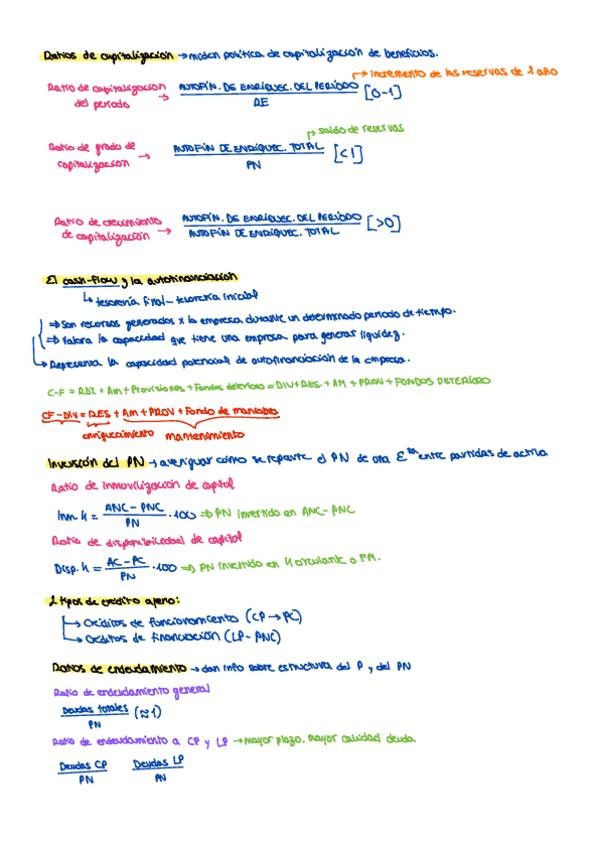 Ratios de capitalización → miden política de capitalización de beneficios.
→ incremento de las reservas de 1 año
Ratio de capitalización del período → AUTOFIN. DE ENRIQUEC. DEL PERÍODO / RE [0-1]
→ saldo de reservas
Ratio de grado de capitalización → AUTOFIN DE ENRIQUEC. TOTAL / PN [<1]
Ratio de crecimiento de capitalización → AUTOFIN. DE ENRIQUEC. DEL PERÍODO / AUTOFIN DE ENRIQUEC. TOTAL [>0]
El cash-flow y la autofinanciación
↳ tesorería final - tesorería inicial
⇒ Son recursos generados x la empresa durante un determinado período de tiempo.
⇒ Valora la capacidad que tiene una empresa para generar liquidez.
↳ Representa la capacidad potencial de autofinanciación de la empresa.
C-F = RDI + Am + Provisiones + Fondos deterioro = DIV + RES. + AM + PROV + FONDOS DETERIORO
CF - DIV = RES + Am + PROV + Fondo de maniobra
enriquecimiento mantenimiento
Inversión del PN → averiguar cómo se reparte el PN de una Eᵐᵃ entre partidas de activo
Ratio de inmovilización de capital
Inm K = ANC - PNC / PN · 100 ⇒ PN invertido en ANC - PNC
Ratio de disponibilidad de capital
Disp. K = AC - PC / PN · 100 ⇒ PN invertido en K circulante o FM.
2 tipos de crédito ajeno:
→ Créditos de funcionamiento (CP → PC)
→ Créditos de financiación (LP - PNC)
Ratios de endeudamiento → dan info sobre estructura del P y del PN
Ratio de endeudamiento general
Deudas totales / PN (≈1)
Ratio de endeudamiento a CP y LP → mayor plazo, mayor calidad deuda
Deudas CP / PN Deudas LP / PN